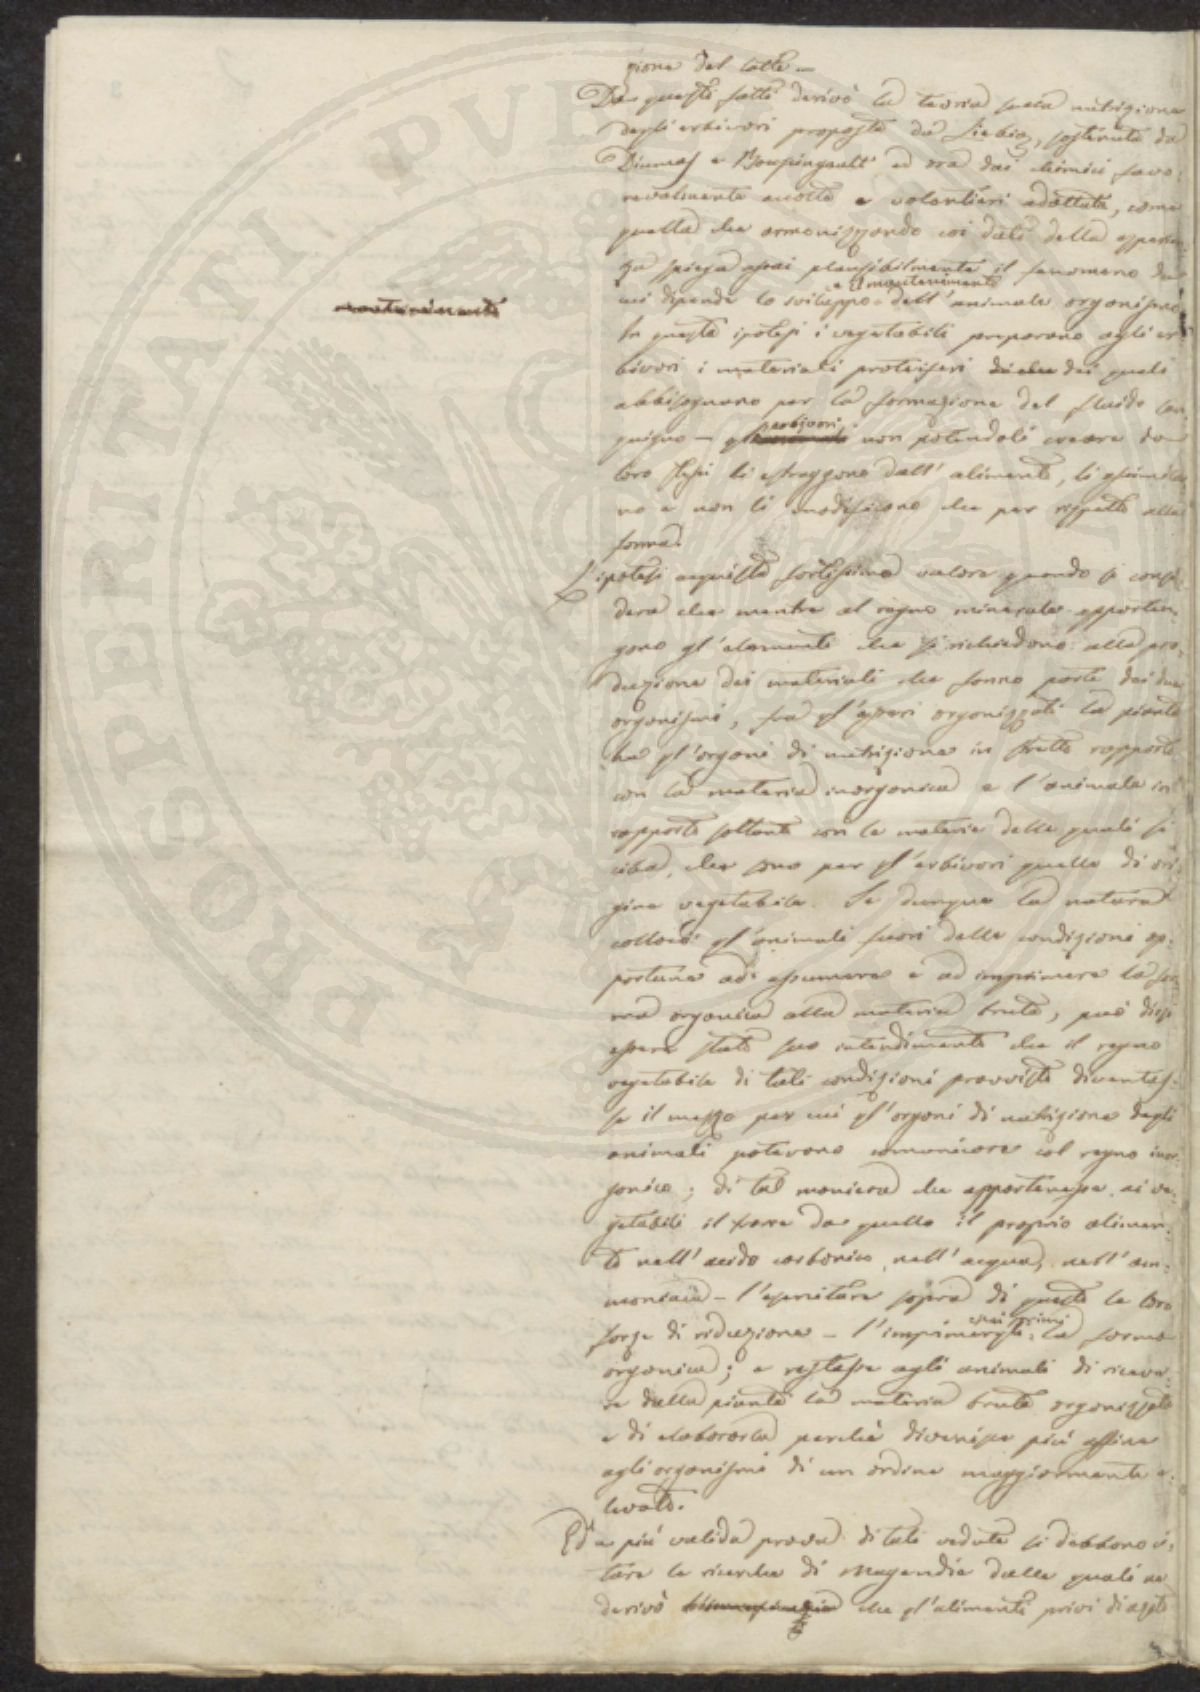 zione del latte —
Da questi fatti derivò la teoria sulla nutrizione
degli erbivori proposta da Liebig, sostenuta da
Dumas e Boussingault ed ora dai chimici favo-
revolmente accolta e volentieri adottata, come
quella che armonizzando coi dati della esperien-
za spiega assai plausibilmente il fenomeno da
e il mantenimento
cui dipende lo sviluppo dell'animale organismo.
mantenimento
In questa ipotesi i vegetabili preparano agli er-
bivori i materiali proteiferi di che dei quali
abbisognano per la formazione del fluido san-
erbivori
guigno — gl' non potendoli creare da
loro stessi li estraggono dall'alimento, li assimila-
no e non li modificano che per rispetto alla
forma.
L'ipotesi acquista fortissimo valore quando si consi-
dera che mentre al regno minerale apparten-
gono gl'elementi che si richiedono alla pro-
duzione dei materiali che fanno parte dei due
organismi, fra gl'esseri organizzati la pianta
ha gl'organi di nutrizione in stretto rapporto
con la materia inorganica e l'animale in
rapporto soltanto con le materie delle quali si
ciba, che sono per gl'erbivori quelle di ori-
gine vegetabile. Se dunque la natura
collocò gl'animali fuori delle condizioni op-
portune ad assumere e ad imprimere la for-
ma organica alla materia bruta, può dirsi
essere stato suo intendimento che il regno
vegetabile di tali condizioni provvisto diventas-
se il mezzo per cui gl'organi di nutrizione degli
animali potevano comunicare col regno inor-
ganico; di tal maniera che appartenesse ai ve-
getabili il trarre da quello il proprio alimen-
to nell'acido carbonico, nell'acqua, nell'am-
moniaca — l'esercitare sopra di questo le loro
essi primi
forze di riduzione — l'imprimergli la forma
organica; e restasse agli animali di riceve-
re dalla pianta la materia bruta organizzata
e di elaborarla perchè divenisse più affine
agli organismi di un ordine maggiormente e-
levato.
Ed a più valida prova di tali vedute si debbono ci-
tare le ricerche di Magendie dalle quali ne
derivò che gl'alimenti privi di azoto
PROSPERITATI PVB